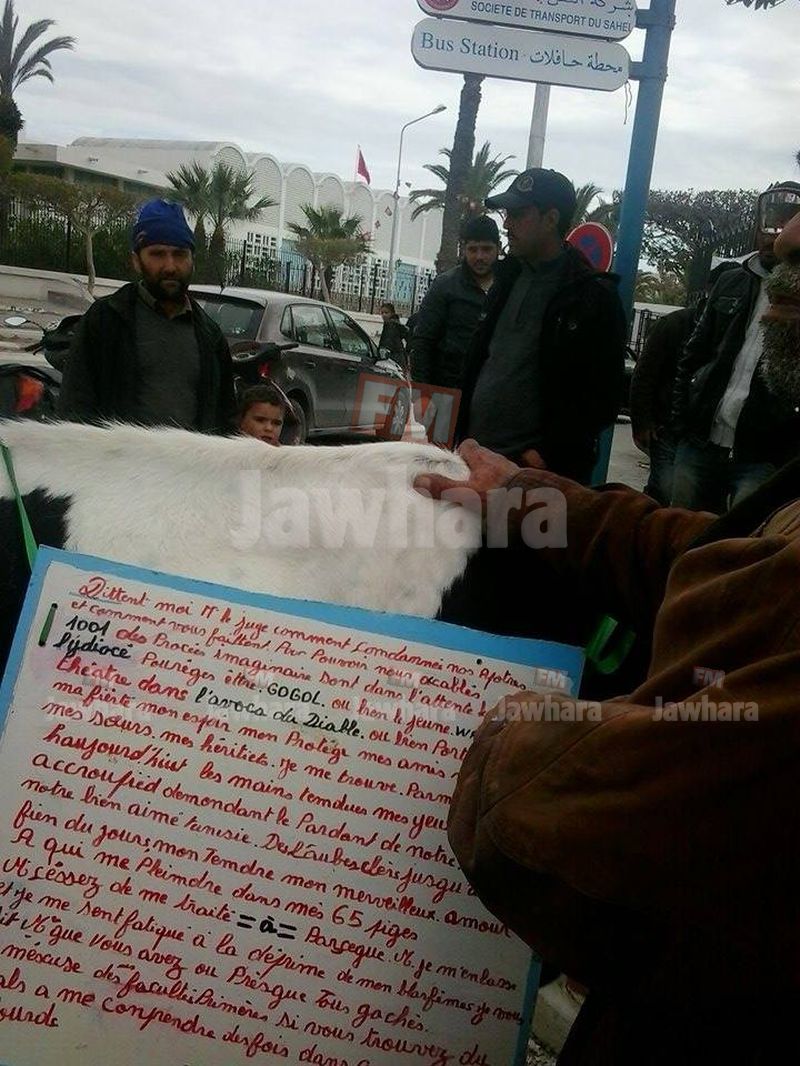 شركة النقل
SOCIETE DE TRANSPORT DU SAHEL
Bus Station - محطة حافلات
FM
Jawhara
Dittent moi Mr le juge comment Condamnei nos Apotres
et comment vous faittent Par Pouvoir nous acablés
1001 des Procès imaginaire sont dans l'attente
l'ydiocé Pourèges être. GOGOL. ou bien le jeune.
théatre dans l'avoca du Diable. ou bien Por
ma fièrté mon espoir mon Protégé mes amis
mes sœurs. mes héritiets. Je me trouve. Parm
haujourd'huit les mains tendues mes yeu
accroupied demondant le Pardont de notre
notre bien aimé tunisie. De L'aubesclère jusqu'a
fien du jours, mon Temdre mon merveilleux. amour
A qui me Pleimdre dans mès 65 piges
M. céssez de me traité = à = Parçeque. M. je m'enlasse
et Je me sent fatiqué à la déprime de mon blasfèmes. je vous
dit Mr que vous avez ou Presque Tous gachés.
mèscuse des facultés Primères si vous trouvez du
als a me conprendre des fois dans
lourde
FM
Jawhara
FM
Jawhara
FM
Jawhara